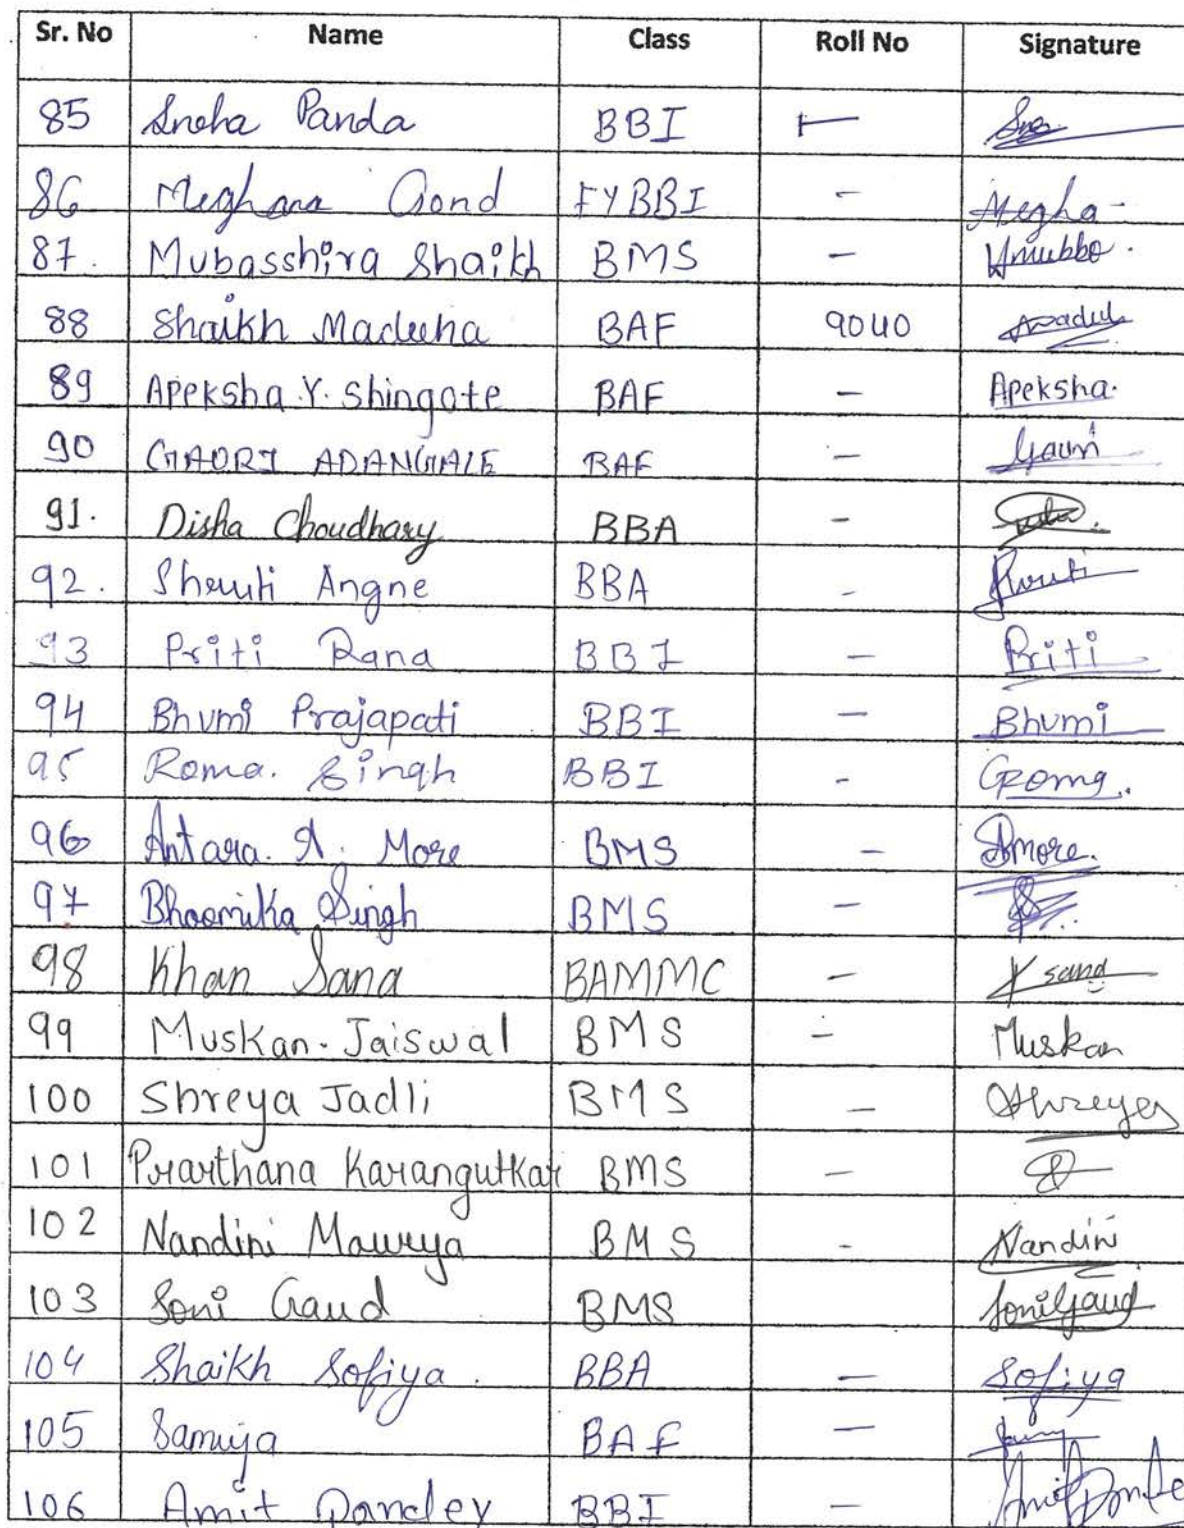 Sr. No Name Class Roll No Signature
85 Sneha Panda BBI —
86 Meghana Gond FYBBI - Megha
87. Mubasshira Shaikh BMS —
88 Shaikh Madeeha BAF 9040
89 Apeksha.Y. Shingote BAF — Apeksha.
90 GAORI ADANGALE BAF — Gauri
91. Disha Choudhary BBA -
92. Shruti Angne BBA - Shruti
93 Priti Rana BBI — Priti
94 Bhumi Prajapati BBI — Bhumi
95 Roma. Singh BBI -
96 Antara. A. More BMS — Amore.
97 Bhoomika Singh BMS —
98 Khan Sana BAMMC — K sana
99 Muskan. Jaiswal BMS — Muskan
100 Shreya Jadli BMS — Shreya
101 Prarthana Karangutkar BMS —
102 Nandini Mourya BMS - Nandini
103 Soni Gaud BMS - Soni Gaud
104 Shaikh Sofiya. BBA — Sofiya
105 BAF —
106 Amit Pandey BBI — Amit Pande